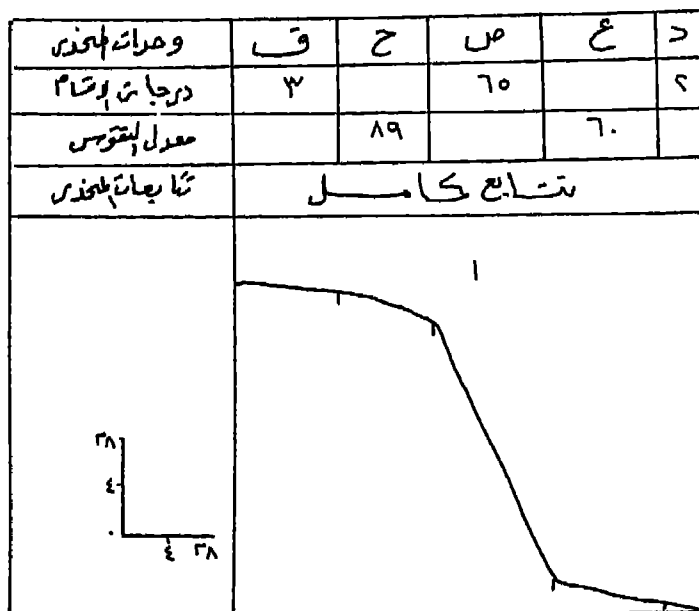 وحدات المنحدر ف ح ص ع د
درجات الأقسام ٣ ٦٥ ٢
معدل التقوس ٨٩ ٦٠
تتابعات المنحدر تتابع كامل
١
٣٨
٤
٠
٤ ٣٨